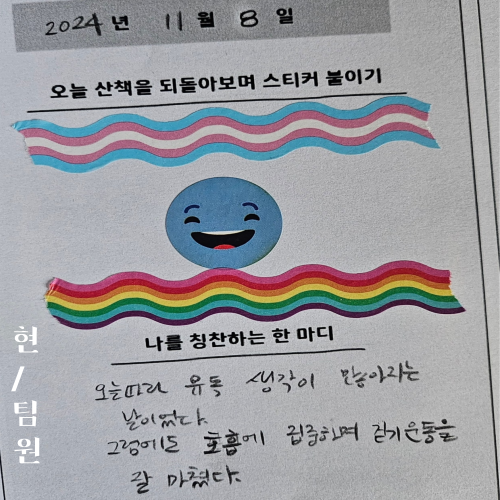 2024 년 11 월 8 일
오늘 산책을 되돌아보며 스티커 붙이기
나를 칭찬하는 한 마디
오늘따라 유독 생각이 많아지는
날이었다.
그럼에도 호흡에 집중하며 걷기운동을
잘 마쳤다.
현
/
팀
원